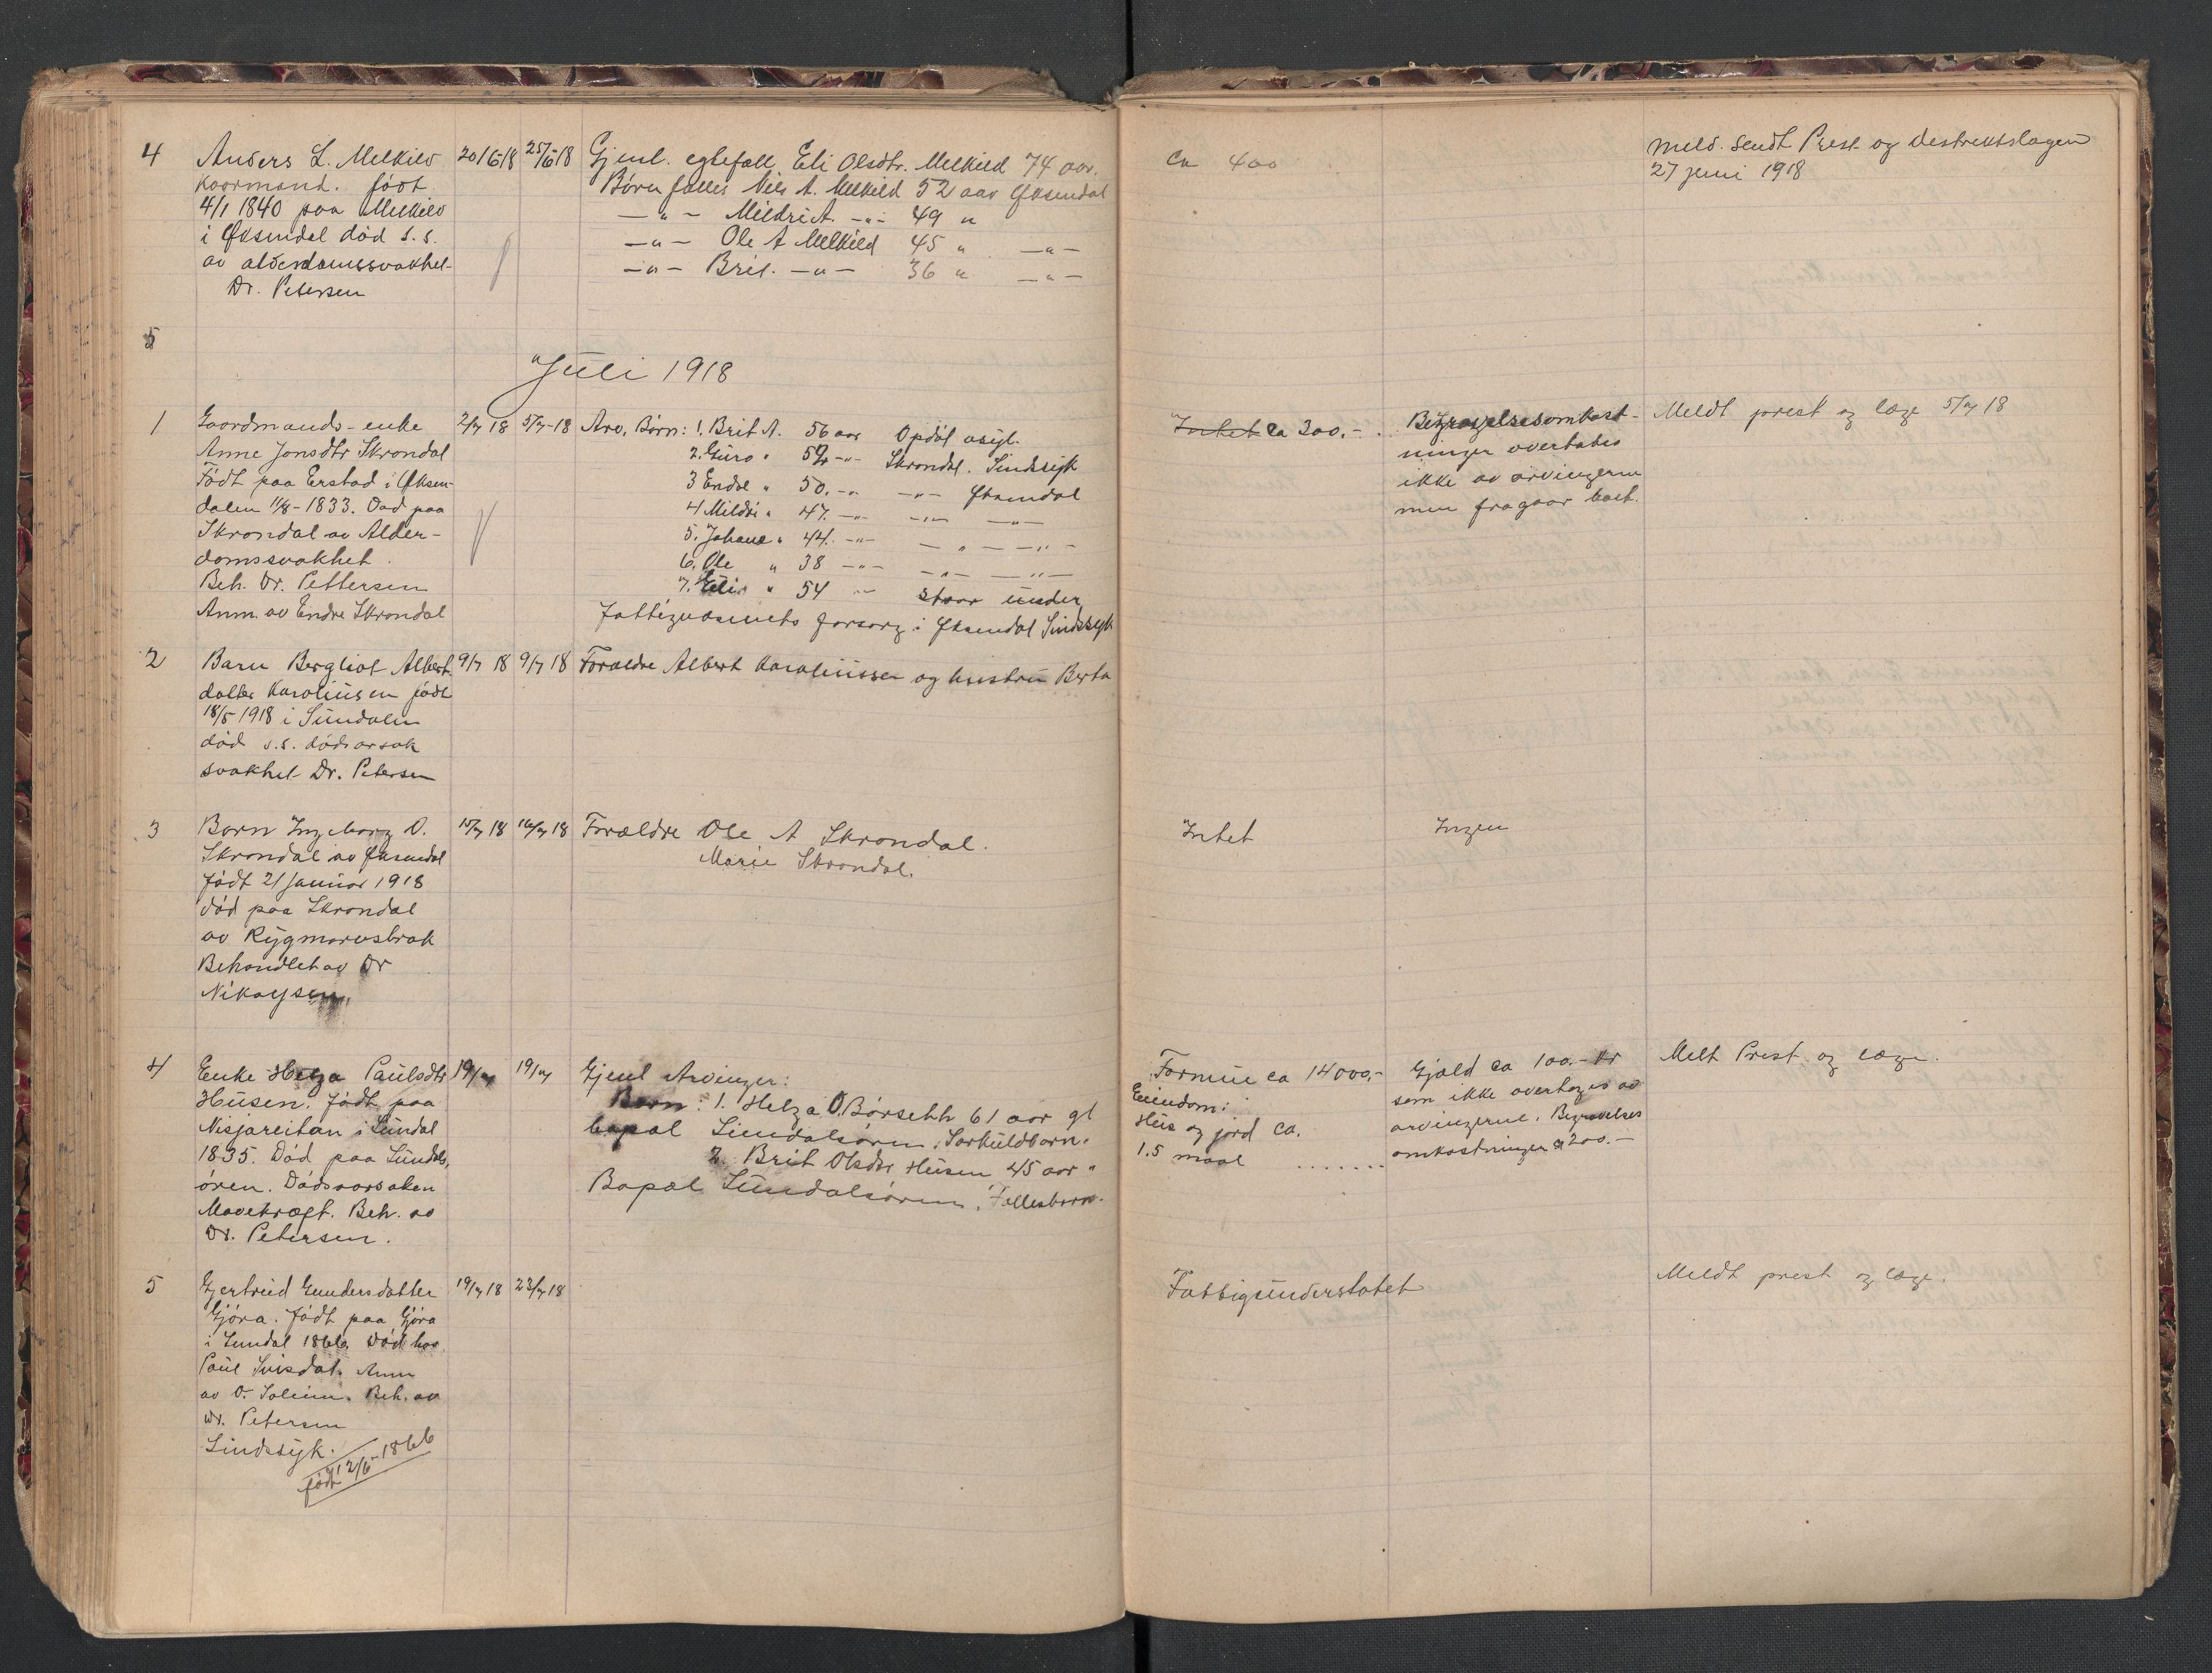 4
Anders L. Melkild
kaarmand. født
4/1 1840 paa Melkild
i Øksendal død s. s.
av alderdomssvakhet
Dr. Petersen
20/6 18
25/6 18
Gjenl. egtefall Eli Olsdtr. Melkild 74 aar.
Børn fælles Nils A. Melkild 52 aar Øksendal
—"— Mildri A. —"— 49 "
—"— Ole A Melkild 45 " —"—
—"— Brit. —"— 36 " —"—
Ca 400
Meld. sendt Prest og destrektslægen
27 juni 1918
5
Juli 1918
1
Gaardmands-enke
Anne Jonsdtr Skrondal
Født paa Erstad i Øksen-
dalen 11/8-1833. Død paa
Skrondal av Alder-
domssvakhet.
Beh. Dr. Pettersen
Anm. av Endre Skrondal
2/7 18
5/7-18
Arv. Børn: 1. Brit A. 56 aar Opdøl asyl.
2. Guro " 52 —"— Skrondal. Sindssyk
3 Endre " 50. —"— —"— Øksendal
4 Mildri " 47. —"— —"— —"—
5. Johane " 44. —"— —"— —"—
6. Ole " 38 —"— —"— —"—
7. Eli " 54 —"— staar under
Fattigvæsenets forsorg i Øksendal Sindssyk
Intet ca 300.-
Begravelsesomkost-
ninger overtates
ikke av arvingerne
men fragaar boet.
Meldt prest og læge 5/7 18
2
Barn Bergliot Albert
datter Karoliusen født
18/5 1918 i Sundalen
død s.s. dødsarsak
svakhet Dr. Petersen
9/7 18
9/7 18
Forældre Albert Karoliussen og hustru Berta
3
Barn Ingeborg O.
Skrondal av Øksendal
født 21 Januar 1918
død paa Skrondal
av Rygmarvsbrok
Behandlet av Dr
Nikaysen.
15/7 18
16/7 18
Forældre Ole A Skrondal.
Marie Skrondal.
Intet
Ingen
4
Enke Helga Paulsdtr
Husen. født paa
Nisjareitan i Sundal
1835. Død paa Sundals,
øren. Dødsaarsaken
Mavekræft. Beh. av
Dr. Petersen.
19/7
19/7
Gjenl Arvinger:
Barn: 1. Helga O. Børsehh 61 aar gl
bopæl Sundalsøren. Særkuldbarn.
2. Brit Olsdtr Husen 45 aar "
Bopæl Sundalsøren. Fællesbarn.
Formue ca 14000,-
Eiendom:
Hus og jord ca.
1.5 maal .......
Gjæld ca 100.- kr
som ikke overtages av
arvingerne. Begravelses
omkostninger ca 200.—
Melt Prest og læge.
5
Gjertrud Gundersdatter
Gjøra. født paa Gjøra
i Sundal 1866. Død hos
Paul Svisdal. Anm
av O. Soleim. Beh. av
Dr. Petersen
Sindssyk.
født 12/6 1866
19/7 18
23/7 18
Fattigunderstøtet
Meldt prest og læge.